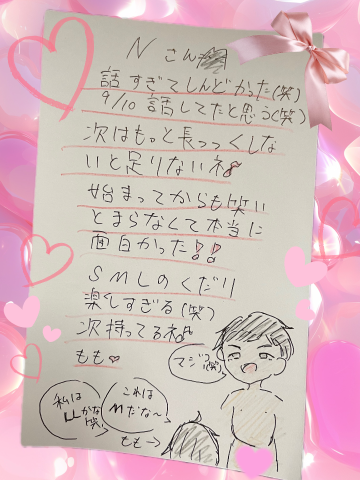 Nさん
話すぎてしんどかった(笑)
9/10 話してたと思う(笑)
次はもっと長っっくしな
いと足りないネ
始まってからも笑い
とまらなくて本当に
面白かった!!
SMLのくだり
楽しすぎる(笑)
次持ってるね
もも♡
マジ?(笑)
これは
Mだな~
私は
Lかな
笑
もも→